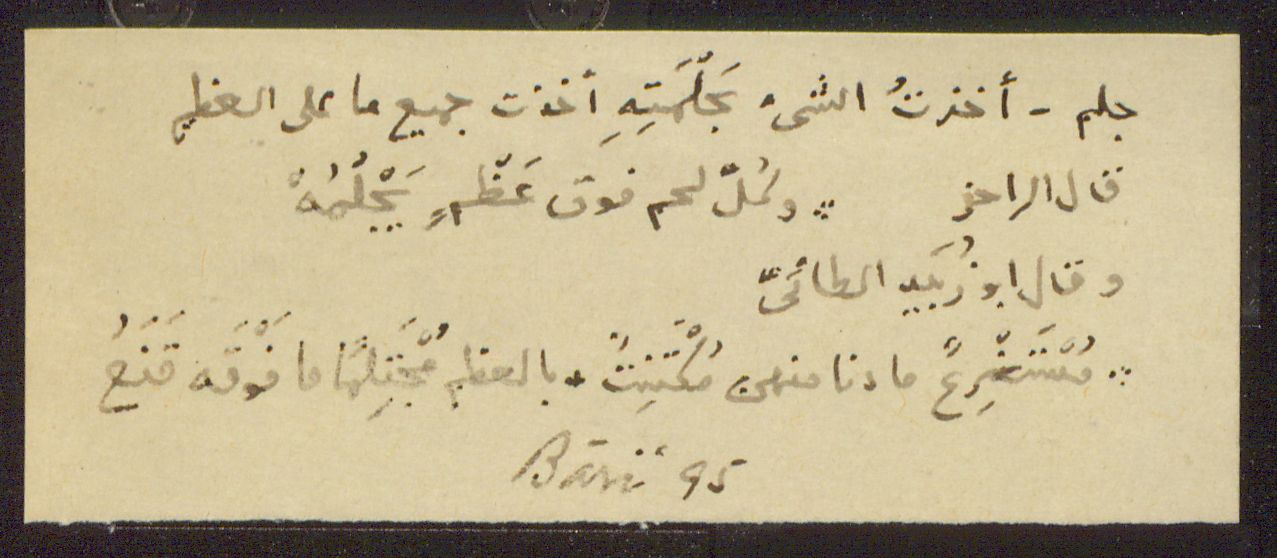 جلم - أخذتُ الشىء بَجَلَّمَتِهِ أخذت جميع ما على العظم
قال الراجز ∴ وكُلّ لحم فوق عَظْمٍ يَجْلُمُهْ
وقال ابو زُبَيد الطائىّ
∴ مُسْتَضْرِعٌ ما دنا منهن مُكْتَنِتٌ * بالعظم مُجْتَلِمًا ما فَوْقَه فَنَعُ
Bāriʿ 95